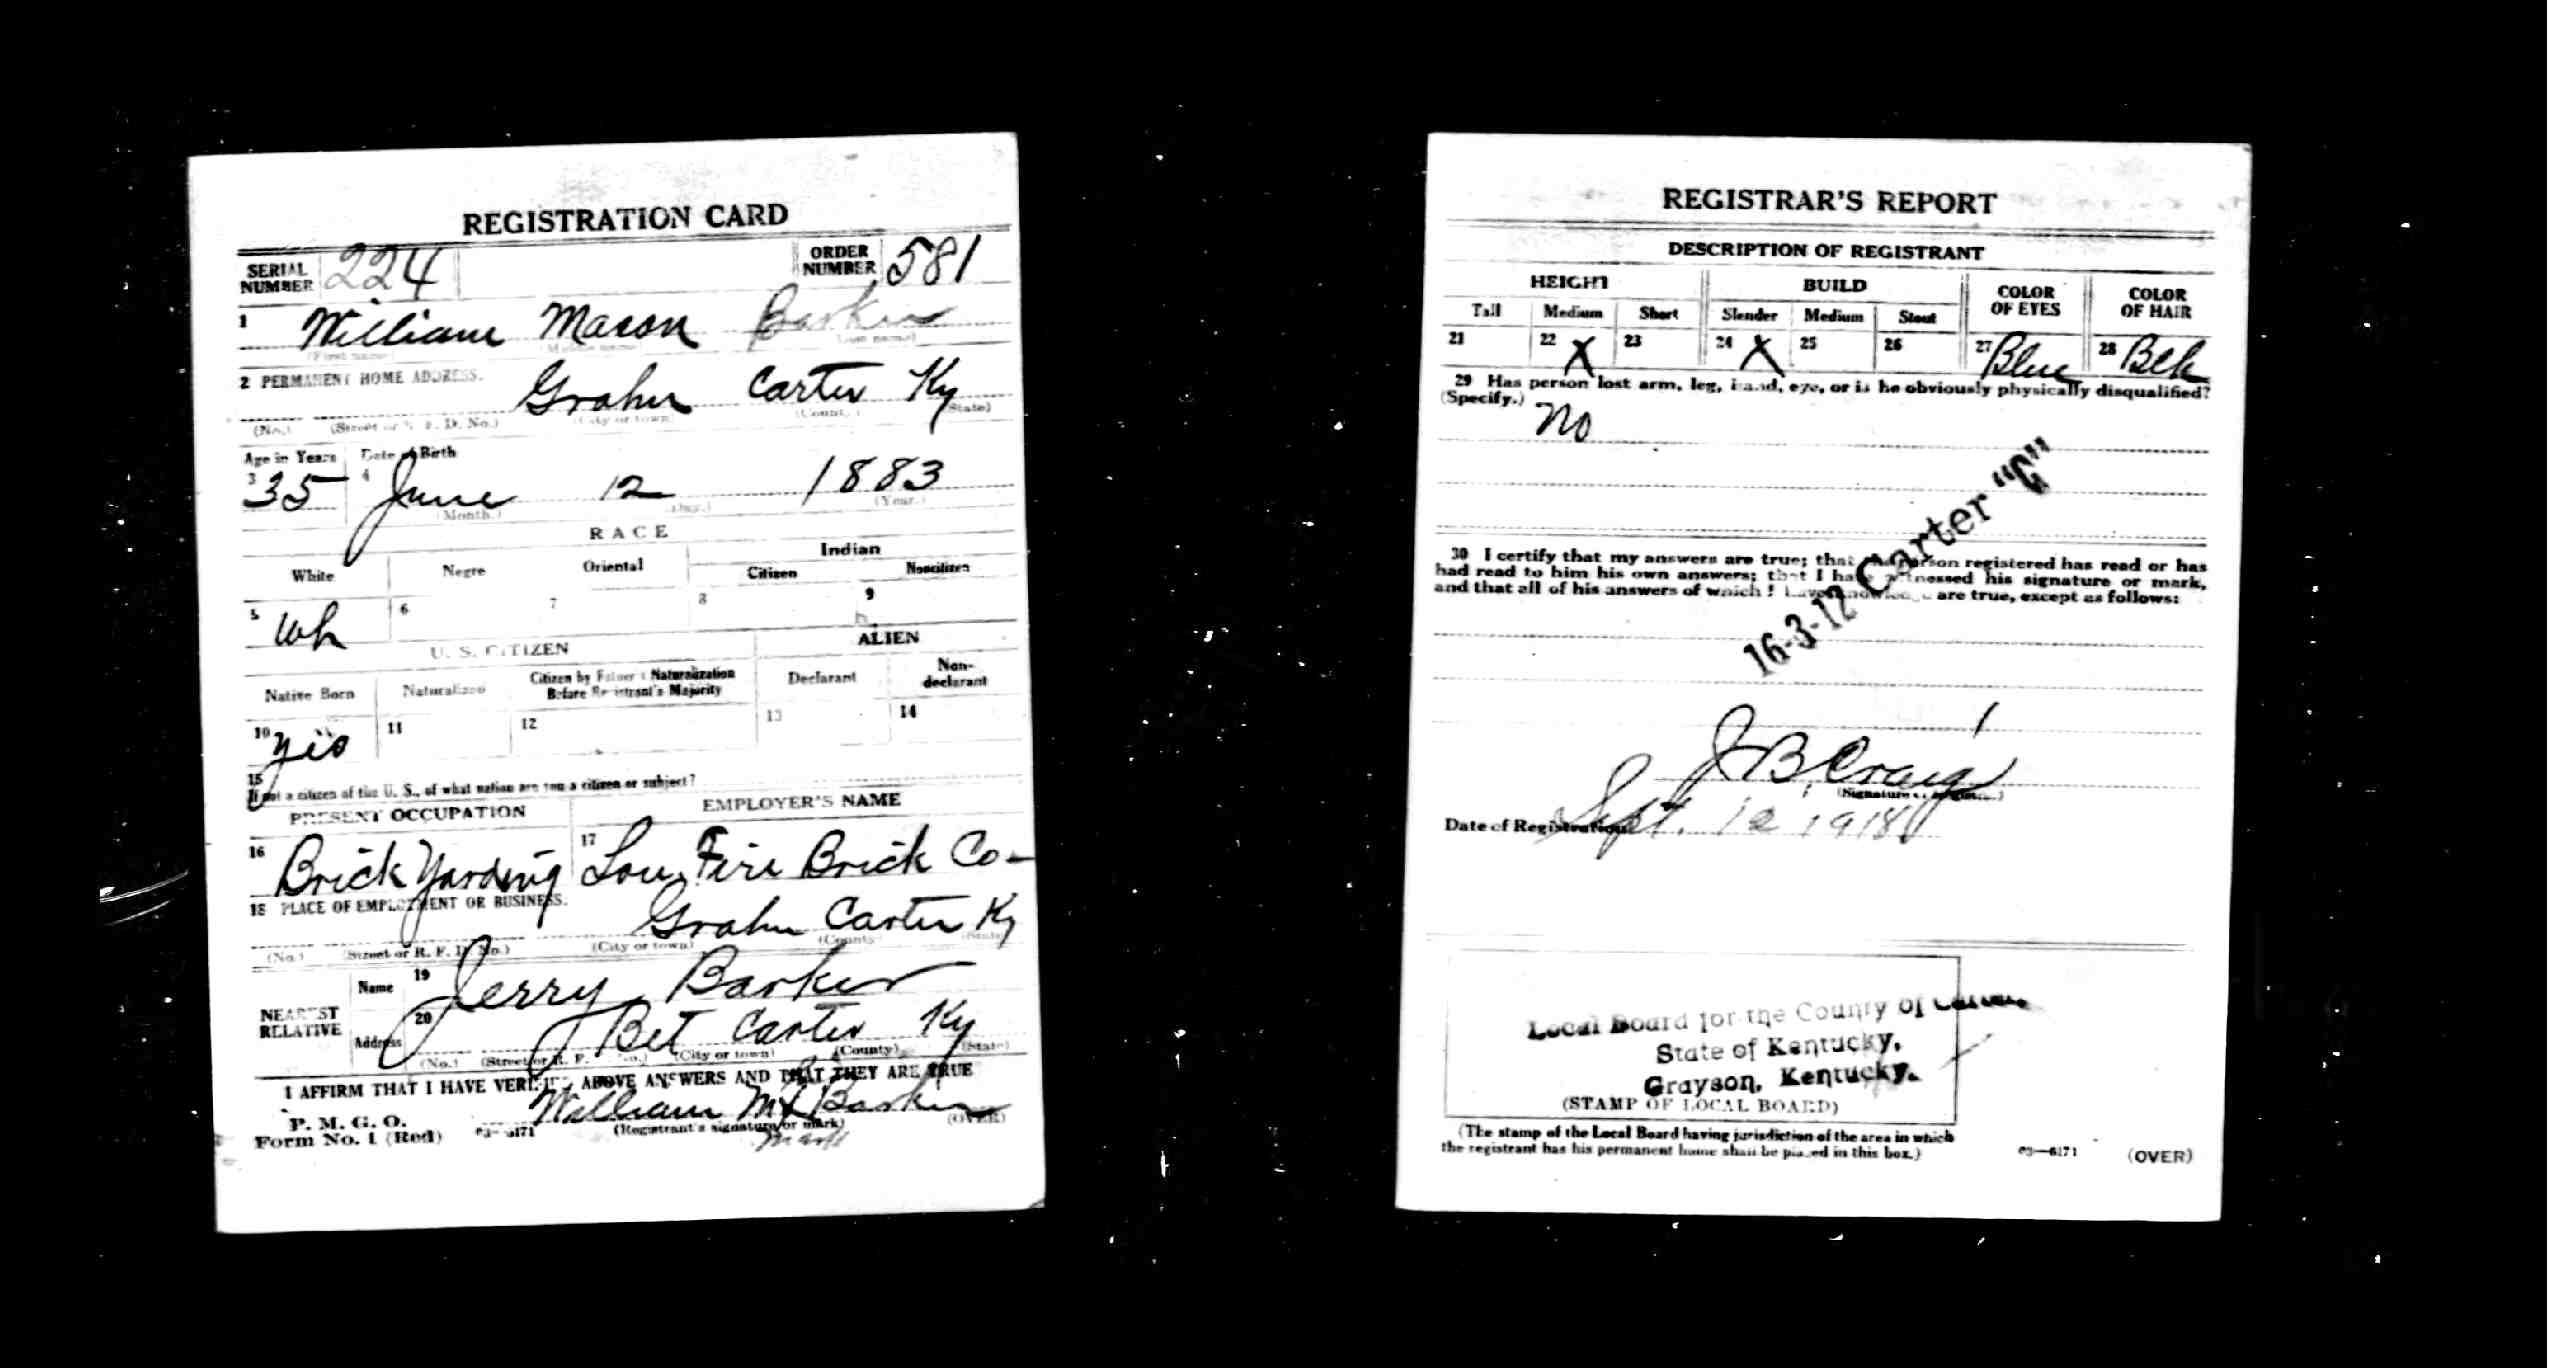 REGISTRATION CARD
SERIAL NUMBER 224 ORDER NUMBER 581
1 William Mason Barker
(First name) (Middle name) (Last name)
2 PERMANENT HOME ADDRESS.
Grahn Carter Ky
(No.) (Street or R. F. D. No.) (City or town) (County) (State)
Age in Years Date of Birth
3 35 4 June 12 1883
(Month.) (Day.) (Year.)
RACE
White Negro Oriental Indian
Citizen Noncitizen
5 Wh 6 7 8 9
U. S. CITIZEN ALIEN
Native Born Naturalized Citizen by Father's Naturalization Before Registrant's Majority Declarant Non-declarant
10 Yes 11 12 13 14
15
If not a citizen of the U. S., of what nation are you a citizen or subject?
PRESENT OCCUPATION EMPLOYER'S NAME
16 Brick Yarding 17 Lou Fire Brick Co-
18 PLACE OF EMPLOYMENT OR BUSINESS.
Grahn Carter Ky
(No.) (Street or R. F. D. No.) (City or town) (County) (State)
NEAREST RELATIVE
Name 19 Jerry Barker
Address 20 Bet Carter Ky
(No.) (Street or R. F. D. No.) (City or town) (County) (State)
I AFFIRM THAT I HAVE VERIFIED ABOVE ANSWERS AND THAT THEY ARE TRUE
P. M. G. O.
Form No. 1 (Red) 03—6171 William M X Barker
(Registrant's signature or mark) (OVER)
mark
REGISTRAR'S REPORT
DESCRIPTION OF REGISTRANT
HEIGHT BUILD COLOR OF EYES COLOR OF HAIR
Tall Medium Short Slender Medium Stout
21 22 X 23 24 X 25 26 27 Blue 28 Blk
29 Has person lost arm, leg, hand, eye, or is he obviously physically disqualified?
(Specify.) No
16-3-12 Carter "C"
30 I certify that my answers are true; that the person registered has read or has
had read to him his own answers; that I have witnessed his signature or mark,
and that all of his answers of which I have knowledge are true, except as follows:
J B Craig
(Signature of Registrar.)
Date of Registration Sept. 12 1918
Local Board for the County of Carter,
State of Kentucky,
Grayson, Kentucky.
(STAMP OF LOCAL BOARD)
(The stamp of the Local Board having jurisdiction of the area in which
the registrant has his permanent home shall be placed in this box.)
03—6171 (OVER)